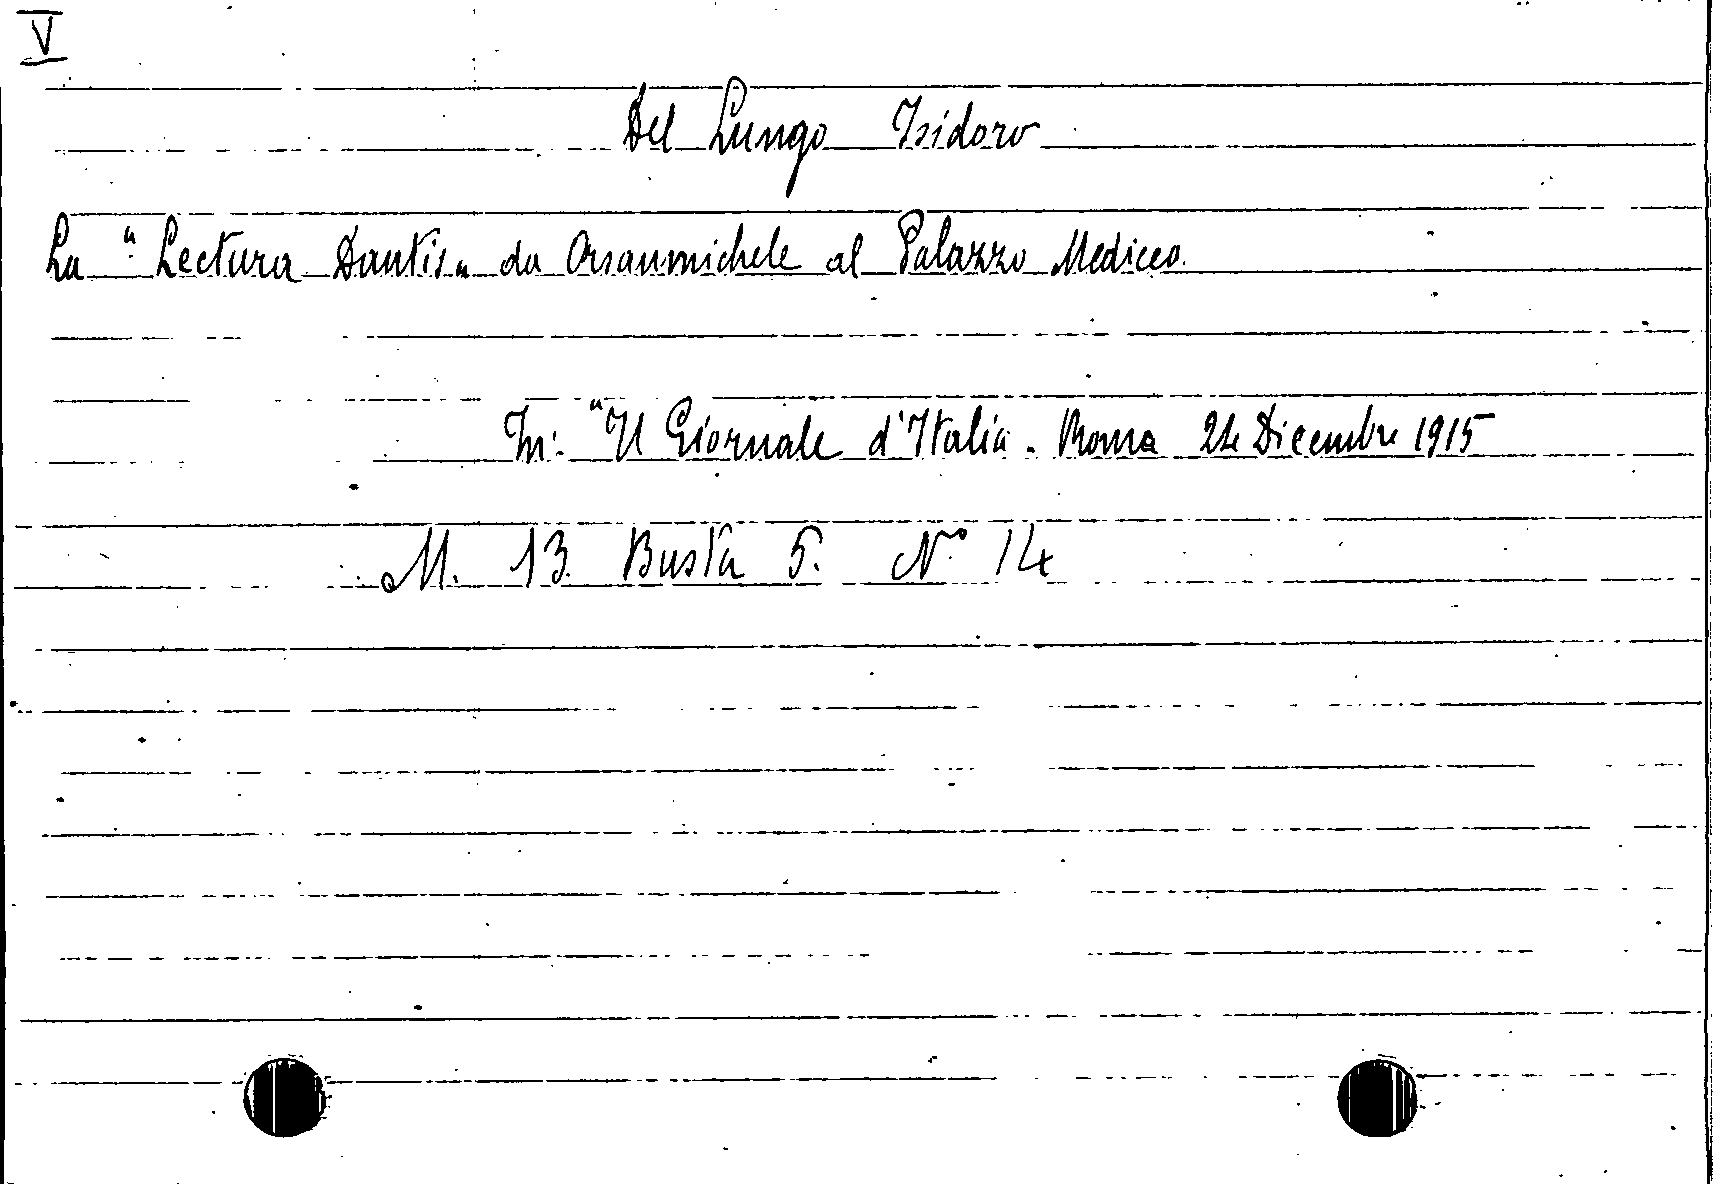 V
Del Lungo Isidoro
La "Lectura Dantis„ da Orsanmichele al Palazzo Mediceo.
In: "Il Giornale d'Italia. Roma 24 Dicembre 1915
M. 13. Busta 5. N° 14